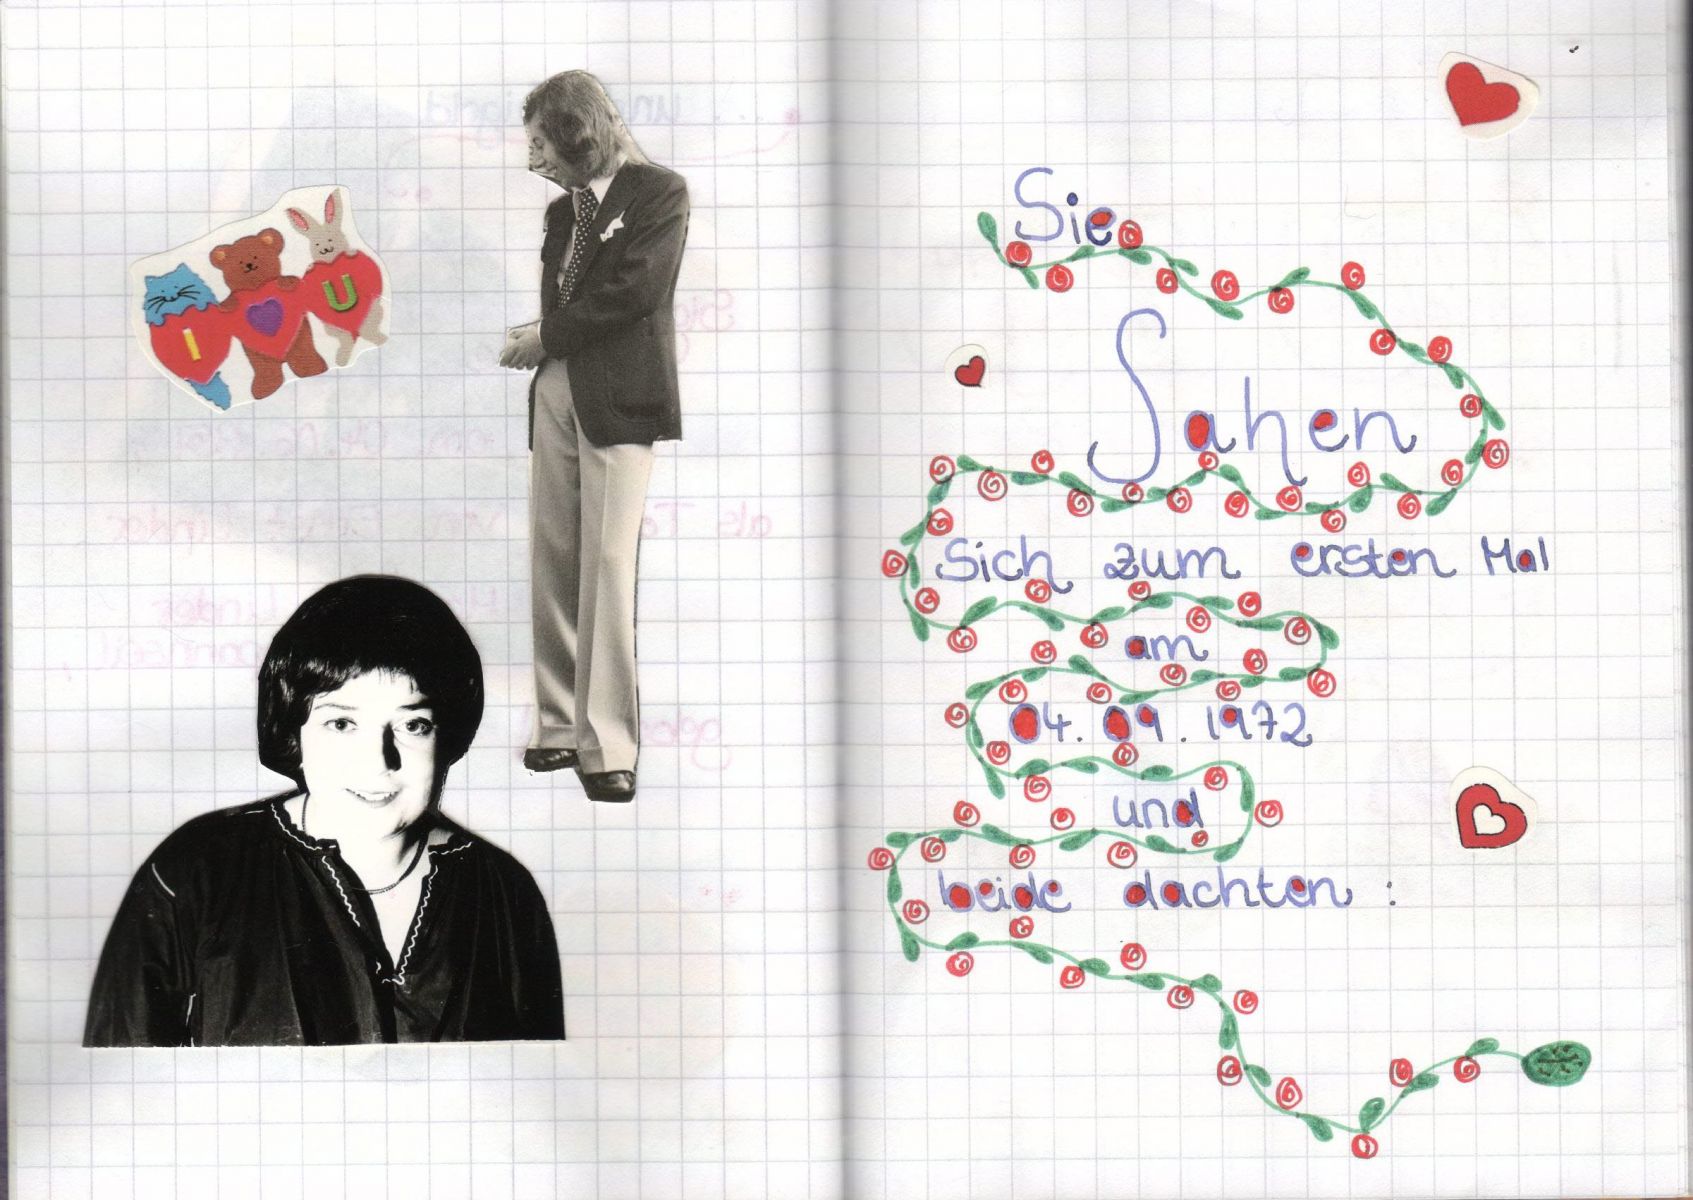 I U
Sie
Sahen
Sich zum ersten Mal
am
04.09.1972
und
beide dachten: